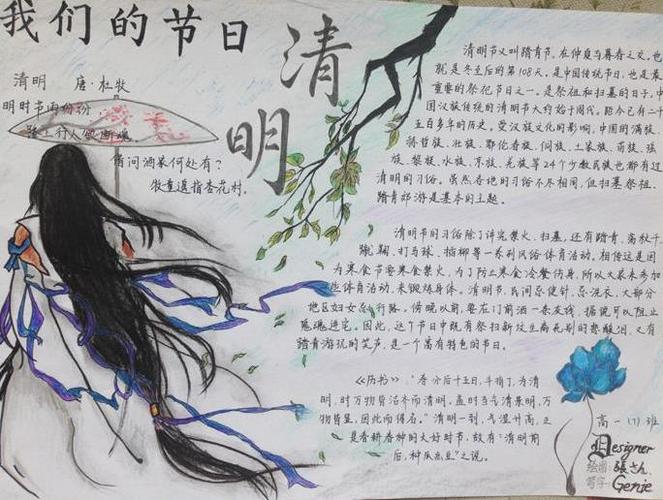 我们的节日
清明
清明 唐·杜牧
明时节雨纷纷,
路上行人欲断魂。
借问酒家何处有?
牧童遥指杏花村。
清明节又叫踏青节,在仲春与暮春之交,也
就是冬至后的第108天。是中国传统节日,也是最
重要的祭祀节日之一。是祭祖和扫墓的日子。中
国汉族传统的清明节大约始于周代。距今已有二千
五百多年的历史。受汉族文化的影响,中国的满族、
赫哲族、壮族、鄂伦春族、侗族、土家族、苗族、瑶
族、黎族、水族、京族、羌族等24个少数民族也都有过
清明的习俗。虽然各地的习俗不尽相同,但扫墓祭祖、
踏青郊游是基本的主题。
清明节的习俗除了讲究禁火、扫墓,还有踏青、荡秋千、
蹴鞠、打马球、插柳等一系列风俗体育活动。相传这是因
为寒食节要寒食禁火,为了防止寒食冷餐伤身,所以大家来参加
些体育活动,来锻炼身体。清明节,民间忌使针,忌洗衣,大部分
地区妇女忌行路。傍晚以前,要在门前洒一条灰线,据说可以阻止
鬼魂进宅。因此,这个节日中既有祭扫新坟生离死别的悲酸泪,又有
踏青游玩的笑声,是一个富有特色的节日。
《历书》:"春分后十五日,斗指丁,为清
明,时万物皆洁齐而清明,盖时当气清景明,万
物皆显,因此而得名。"清明一到,气温升高,正
是春耕春种的大好时节,故有"清明前
后,种瓜点豆"之说。
高一(7)班
Designer
绘图:
写字:Genie